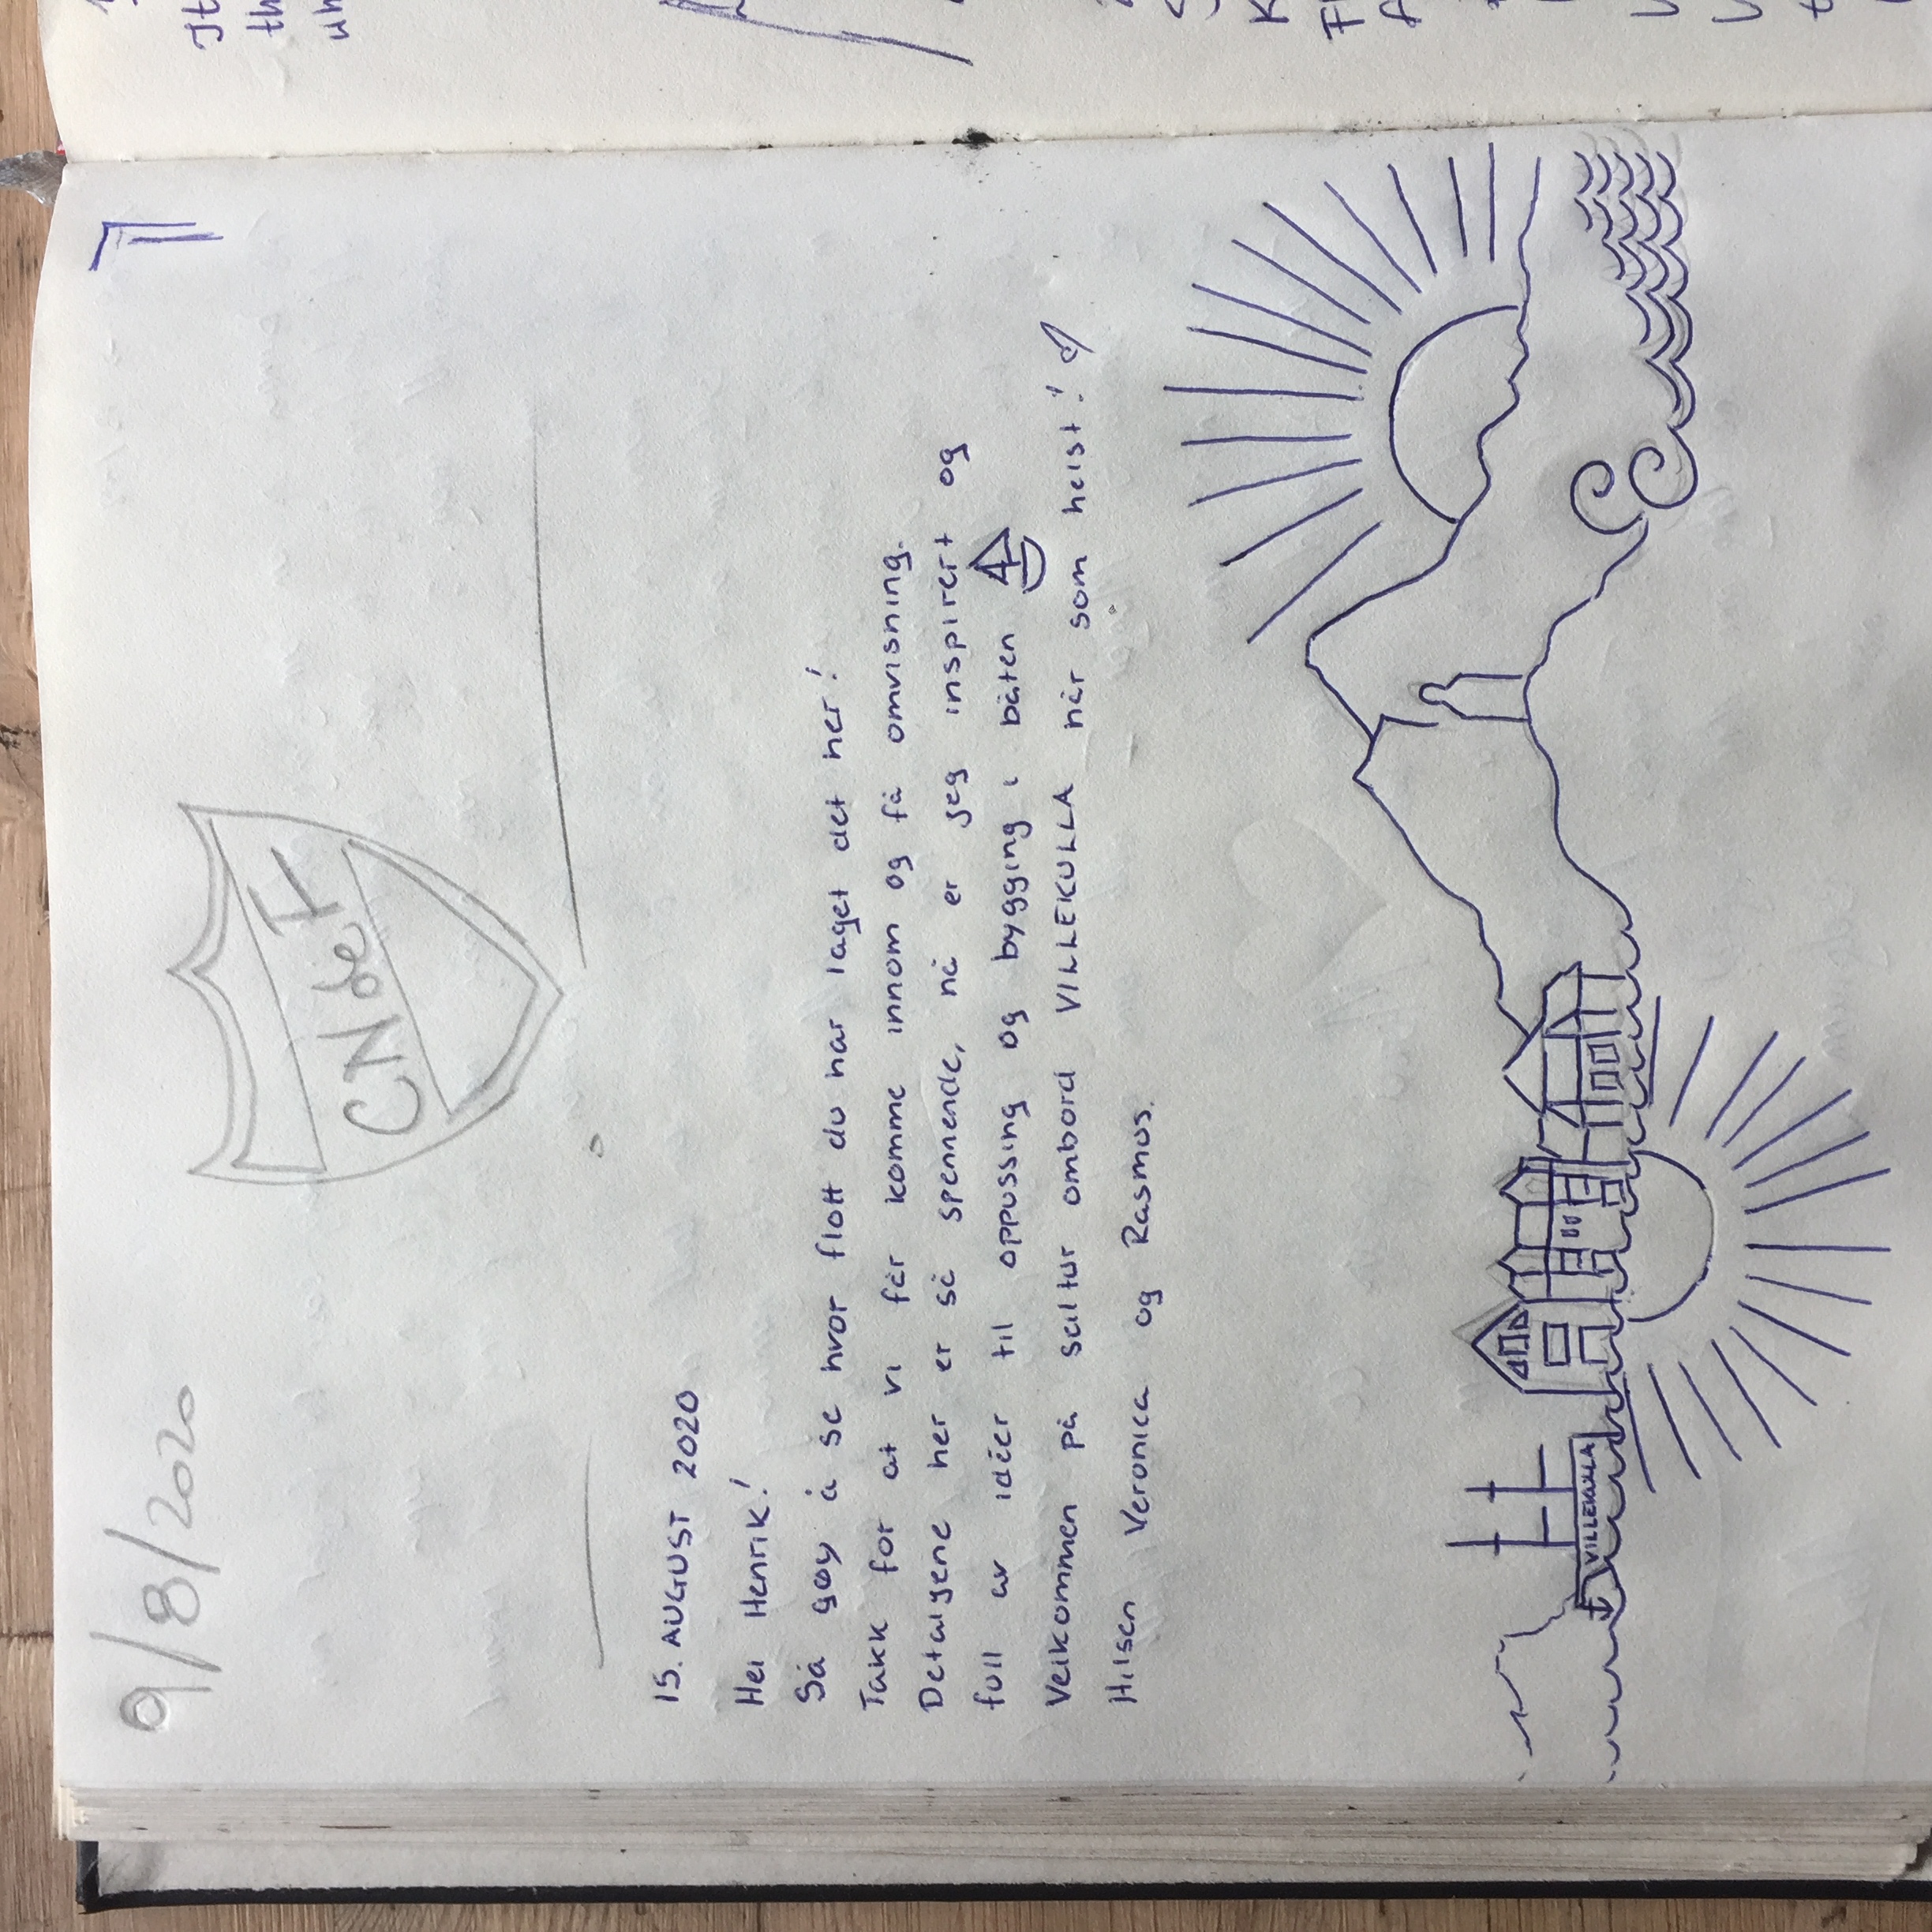 9/8/2020
CNbeI
15. AUGUST 2020
Hei Henrik!
Så gøy å se hvor flott du har laget det her!
Takk for at vi får komme innom og få omvisning.
Detaljene her er så spennende, nå er jeg inspirert og
full av idéer til oppussing og bygging i båten
Velkommen på seiltur ombord VILLEKULLA når som helst!
Hilsen Veronica og Rasmus.
VILLEKULLA